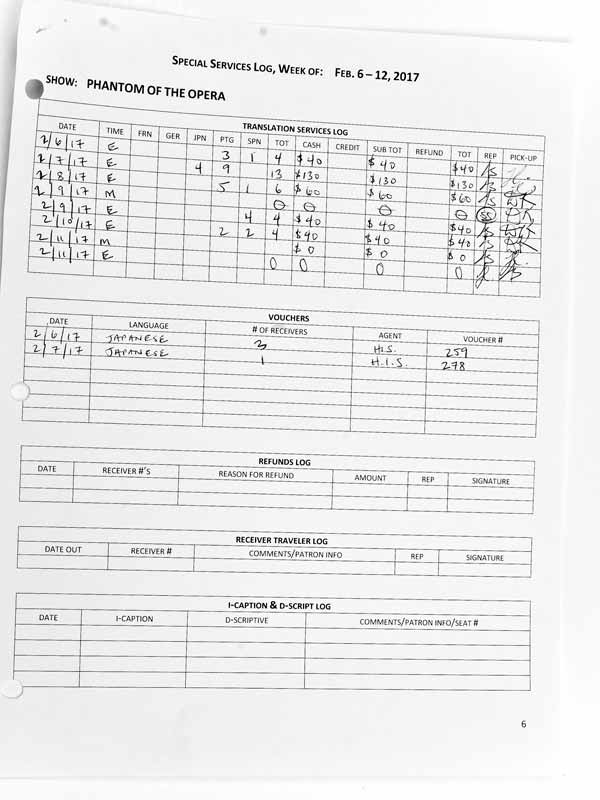 SPECIAL SERVICES LOG, WEEK OF: FEB. 6 – 12, 2017
SHOW: PHANTOM OF THE OPERA
TRANSLATION SERVICES LOG
DATE TIME FRN GER JPN PTG SPN TOT CASH CREDIT SUB TOT REFUND TOT REP PICK-UP
2/6/17 E 3 1 4 $40 $40 $40
2/7/17 E 4 9 13 $130 $130 $130
2/8/17 E 5 1 6 $60 $60 $60
2/9/17 M 0 0 0 0 SS
2/9/17 E 4 4 $40 $40 $40
2/10/17 E 2 2 4 $40 $40 $40
2/11/17 M $0 $0 $0
2/11/17 E 0 0 0 0
VOUCHERS
DATE LANGUAGE # OF RECEIVERS AGENT VOUCHER #
2/6/17 JAPANESE 3 H.I.S. 259
2/7/17 JAPANESE 1 H.I.S. 278
REFUNDS LOG
DATE RECEIVER #'S REASON FOR REFUND AMOUNT REP SIGNATURE
RECEIVER TRAVELER LOG
DATE OUT RECEIVER # COMMENTS/PATRON INFO REP SIGNATURE
I-CAPTION & D-SCRIPT LOG
DATE I-CAPTION D-SCRIPTIVE COMMENTS/PATRON INFO/SEAT #
6